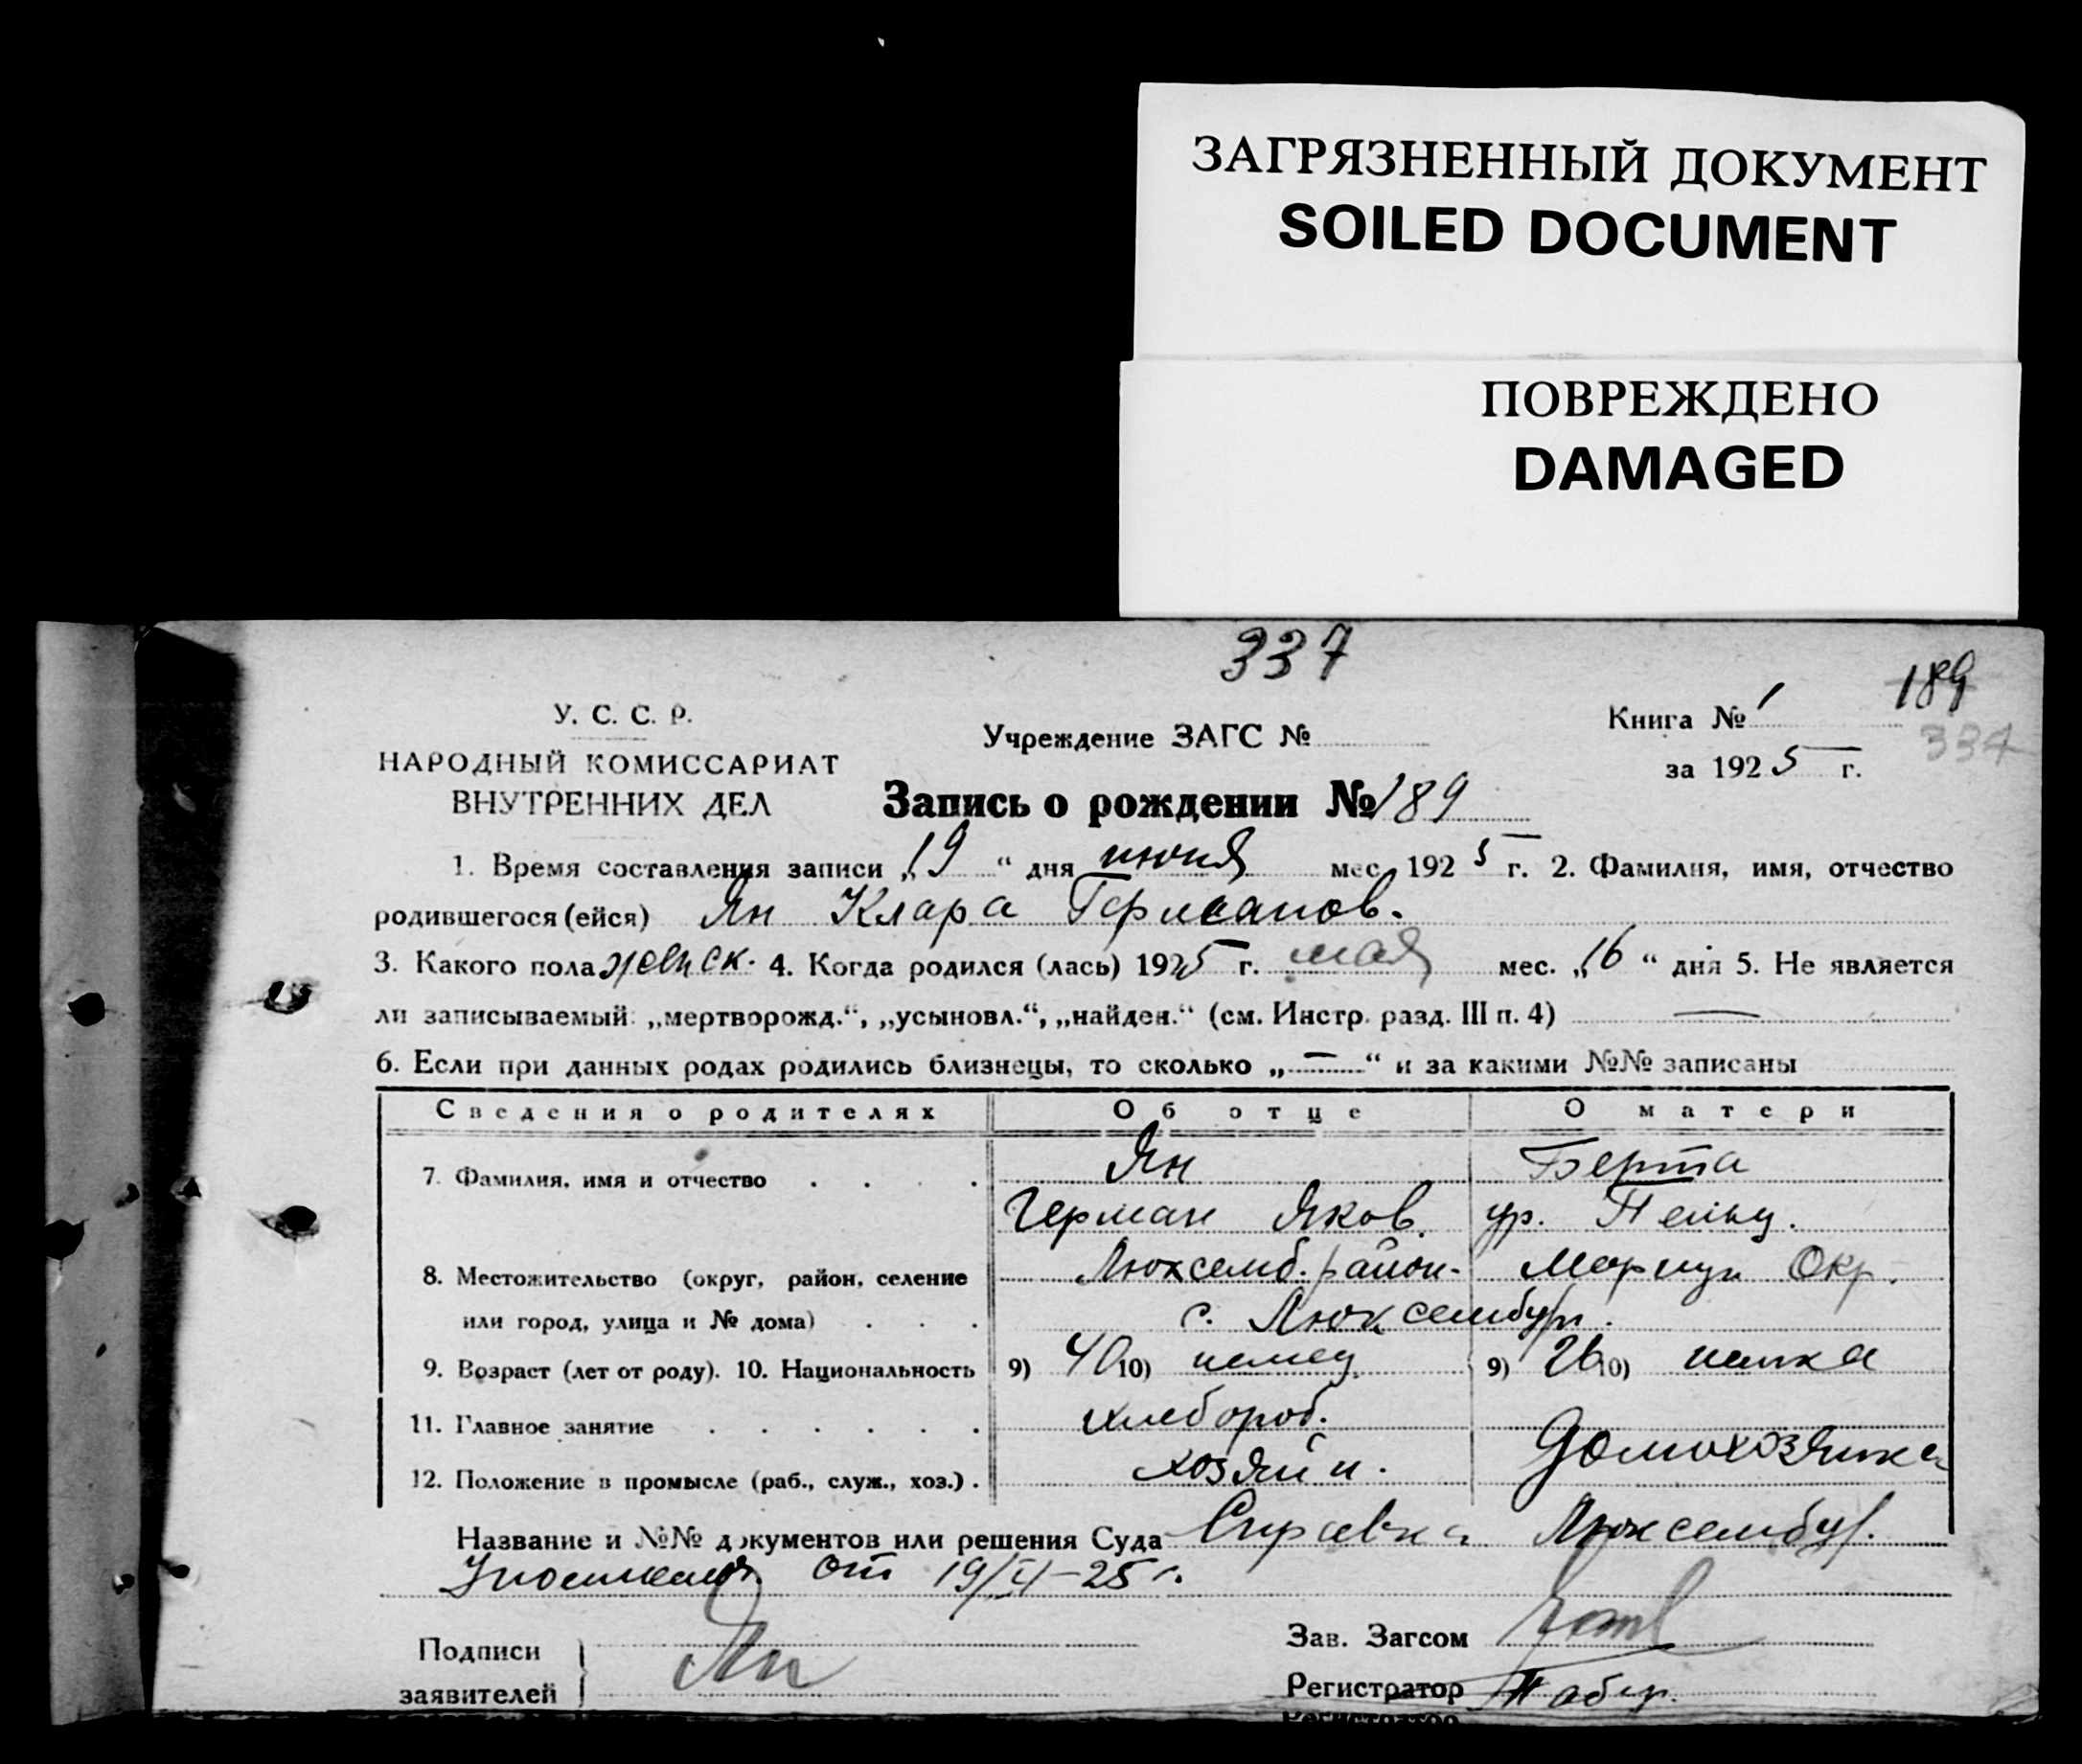 ЗАГРЯЗНЕННЫЙ ДОКУМЕНТ
SOILED DOCUMENT
ПОВРЕЖДЕНО
DAMAGED
337
189
У. С. С. Р.
Учреждение ЗАГС №
Книга № 1
334
НАРОДНЫЙ КОМИССАРИАТ
за 1925 г.
ВНУТРЕННИХ ДЕЛ
Запись о рождении № 189
1. Время составления записи „19“ дня июня мес. 1925 г. 2. Фамилия, имя, отчество
родившегося (ейся) Ян Клара Германов.
3. Какого пола женск. 4. Когда родился (лась) 1925 г. мая мес. „16“ дня 5. Не является
ли записываемый: „мертворожд.“, „усыновл.“, „найден.“ (см. Инстр. разд. III п. 4) —
6. Если при данных родах родились близнецы, то сколько „—“ и за какими №№ записаны
Сведения о родителях Об отце О матери
7. Фамилия, имя и отчество . . . . Ян Берта
Герман Яков. ур.
8. Местожительство (округ, район, селение Люксемб. район. Мариуп Окр.
или город, улица и № дома) . . . с. Люксембург.
9. Возраст (лет от роду). 10. Национальность 9) 40 10) немец 9) 26 10) немка
11. Главное занятие . . . . . . хлебороб.
12. Положение в промысле (раб., служ., хоз.) . хозяин. Домохозяйка
Название и №№ документов или решения Суда Справка Люксембург.
от 19/VI-25 г.
Подписи
заявителей
Ян
Зав. Загсом
Регистратор
Регистратор